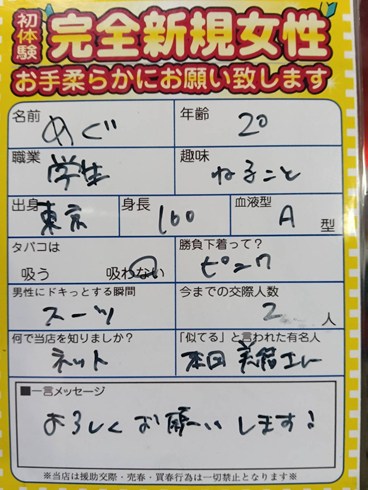 初体験
完全新規女性
お手柔らかにお願い致します
名前 めぐ 年齢 20
職業 学生 趣味 ねること
出身 東京 身長 160 血液型 A 型
タバコは 吸う 吸わない 勝負下着って? ピンク
男性にドキっとする瞬間 スーツ 今までの交際人数 2 人
何で当店を知りましたか? ネット 「似てる」と言われた有名人 本田
■一言メッセージ
よろしくお願いします!
※当店は援助交際・売春・買春行為は一切禁止となります※